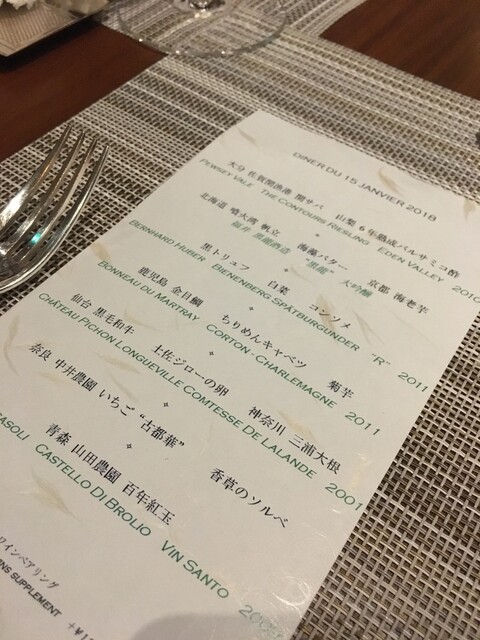 DINER DU 15 JANVIER 2018
大分 佐賀関漁港 関サバ 山梨 6年熟成バルサミコ酢
PEWSEY VALE THE CONTOURS RIESLING EDEN VALLEY 2010
北海道 噴火湾 帆立 海藻バター 京都 海老芋
福井 黒龍酒造 "黒龍" 大吟醸
黒トリュフ 白菜 コンソメ
BERNHARD HUBER BIENENBERG SPÄTBURGUNDER "R" 2011
鹿児島 金目鯛 ちりめんキャベツ 菊芋
BONNEAU DU MARTRAY CORTON-CHARLEMAGNE 2011
仙台 黒毛和牛 土佐ジローの卵 神奈川 三浦大根
CHÂTEAU PICHON LONGUEVILLE COMTESSE DE LALANDE 2001
奈良 中井農園 いちご"古都華" 香草のソルベ
青森 山田農園 百年紅玉
ASOLI CASTELLO DI BROLIO VIN SANTO
ワインペアリング
NS SUPPLEMENT +¥1